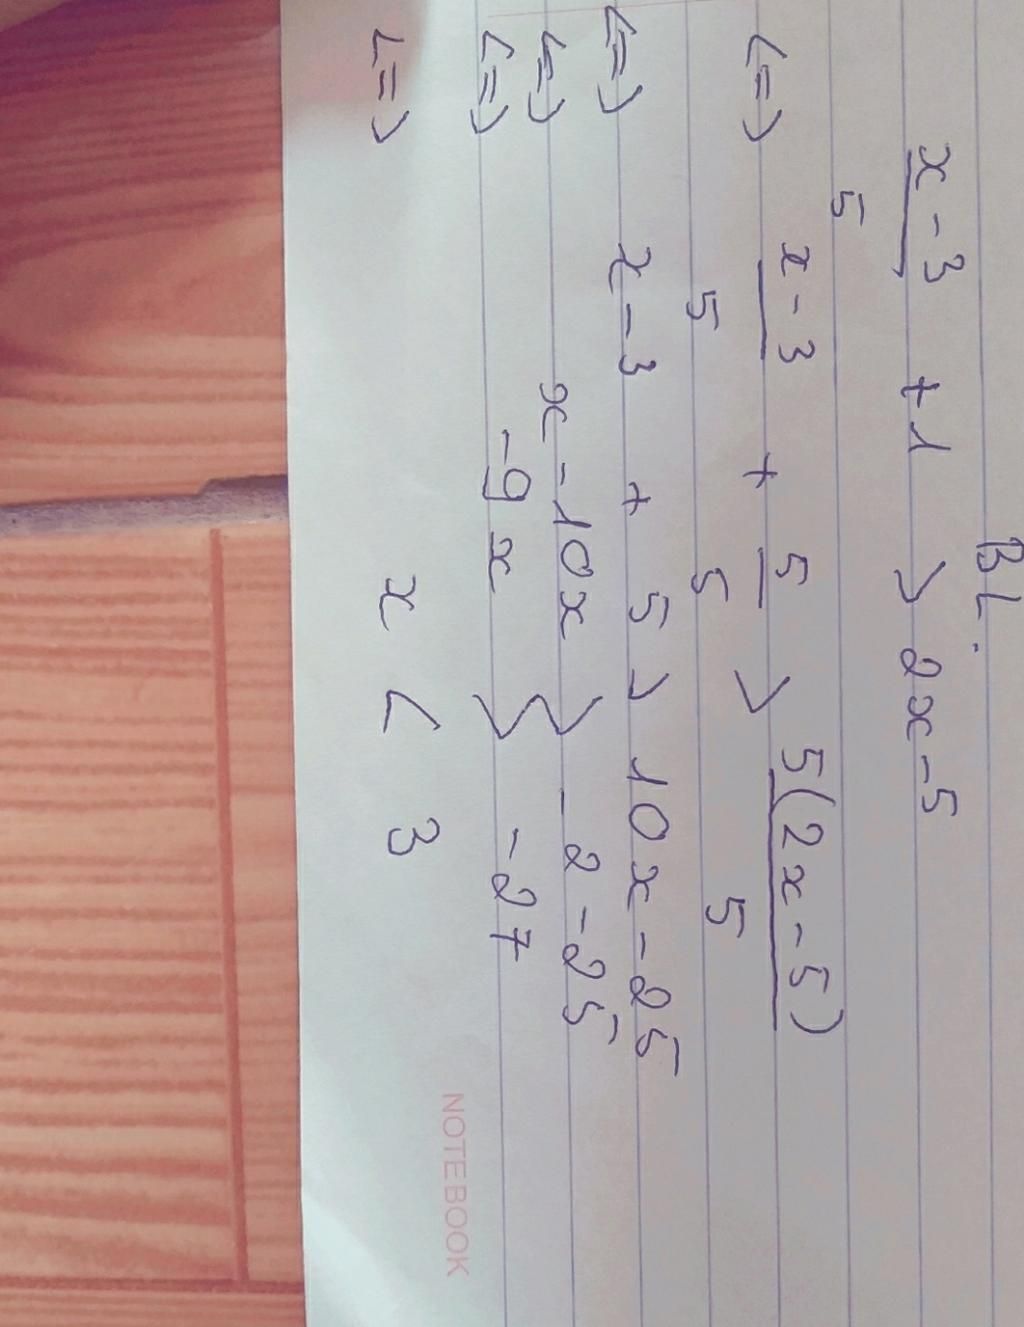 BL.
x - 3 / 5 + 1 > 2x - 5
<=> x - 3 / 5 + 5 / 5 > 5(2x - 5) / 5
<=> x - 3 + 5 > 10x - 25
<=> x - 10x > -2 - 25
<=> -9x > -27
<=> x < 3
NOTEBOOK